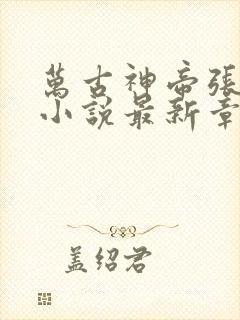 萬古神帝張
小說最新章
蓋紹君